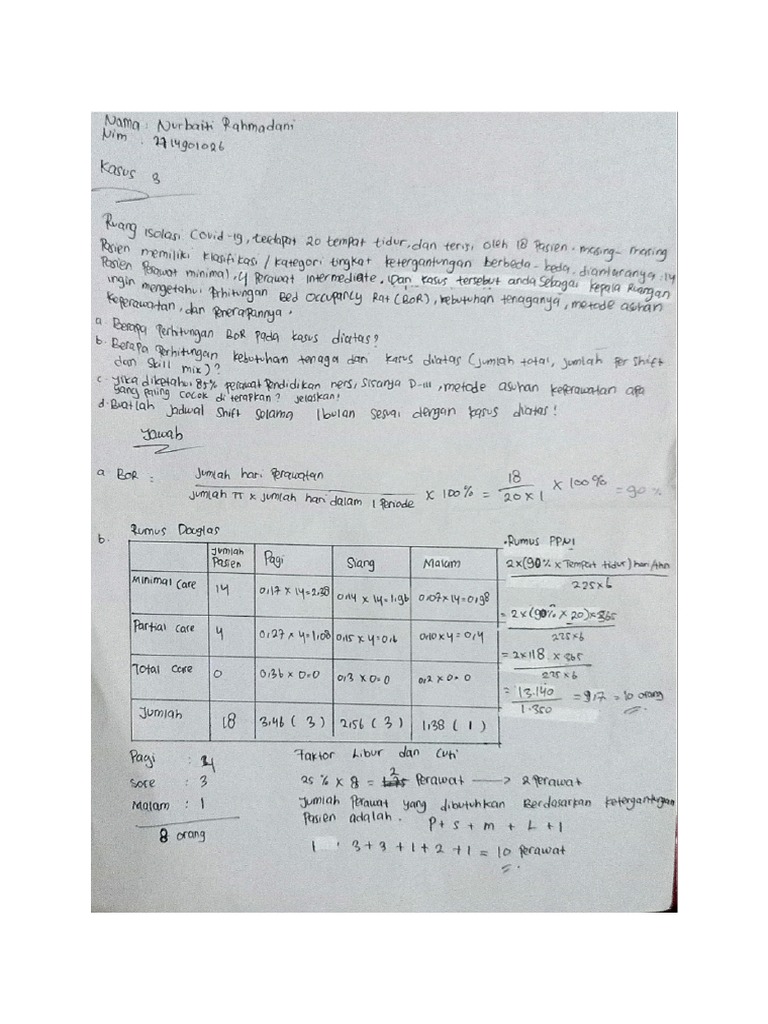 Nama : Nurbaiti Rahmadani
Nim : 2714901026
Kasus 3
Ruang isolasi Covid-19, terdapat 20 tempat tidur, dan terisi oleh 18 Pasien. masing-masing
Pasien memiliki klasifikasi/kategori tingkat ketergantungan berbeda-beda. diantaranya : 14
Pasien Perawat minimal, 4 Perawat Intermediate. Dari kasus tersebut anda sebagai kepala Ruangan
ingin mengetahui Perhitungan Bed Occupancy Rat (BOR), kebutuhan tenaganya, metode asuhan
Keperawatan, dan Penerapannya.
a. Berapa Perhitungan BOR pada kasus diatas?
b. Berapa Perhitungan kebutuhan tenaga dari kasus diatas (jumlah total, jumlah per shift
dan skill mix)?
c. jika diketahui 85% perawat Pendidikan ners, sisanya D-III, metode asuhan keperawatan apa
yang paling cocok di terapkan? jelaskan!
d. Buatlah Jadwal Shift Selama 1 bulan sesuai dengan kasus diatas!
Jawab
a BOR : Jumlah hari Perawatan / jumlah TT x jumlah hari dalam 1 Periode x 100% = 18 / 20 x 1 x 100% = 90%
b. Rumus Douglas
Jumlah Pasien Pagi Siang Malam
Minimal Care 14 0,17 x 14 = 2,38 0,14 x 14 = 1,96 0,07 x 14 = 0,98
Partial care 4 0,27 x 4 = 1,08 0,15 x 4 = 0,6 0,10 x 4 = 0,4
Total Care 0 0,36 x 0 = 0 0,3 x 0 = 0 0,2 x 0 = 0
Jumlah 18 3,46 ( 3 ) 2,56 ( 3 ) 1,38 ( 1 )
• Rumus PPNI
2 x (90% x Tempat tidur) hari/thn / 225 x 6
= 2 x (90% x 20) x 365 / 225 x 6
= 2 x 118 x 365 / 225 x 6
= 13.140 / 1.350 = 9,7 = 10 orang
Pagi :
Sore : 3
Malam : 1
8 orang
Faktor Libur dan Cuti
25 % x 8 = 2 Perawat → 2 Perawat
Jumlah Perawat yang dibutuhkan Berdasarkan ketergantungan
Pasien adalah. P + S + m + L + 1
3 + 3 + 1 + 2 + 1 = 10 Perawat